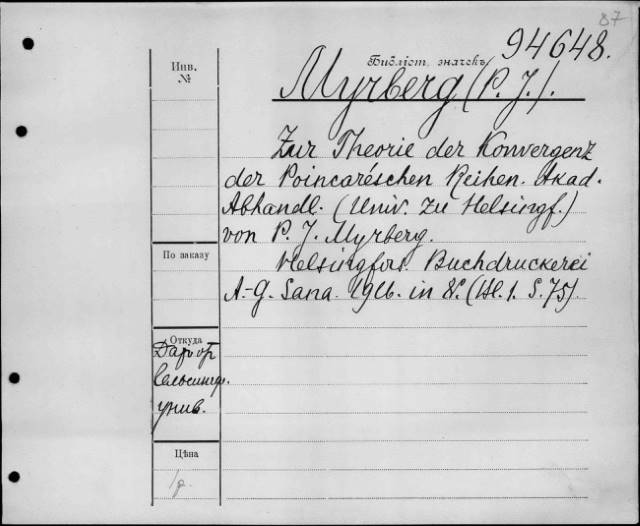 87
94648.
Инв.
№
Библіот. значекъ
Myrberg (P. J.).
Zur Theorie der Konvergenz
der Poincaréschen Reihen. Akad.
Abhandl. (Univ. zu Helsingf.)
von P. J. Myrberg.
По заказу
Helsingfors. Buchdruckerei
A.-G. Sana. 1916. in 8°. (Bl. 1. S. 75)
Откуда
Даръ от
Гельсингф.
унив.
Цѣна